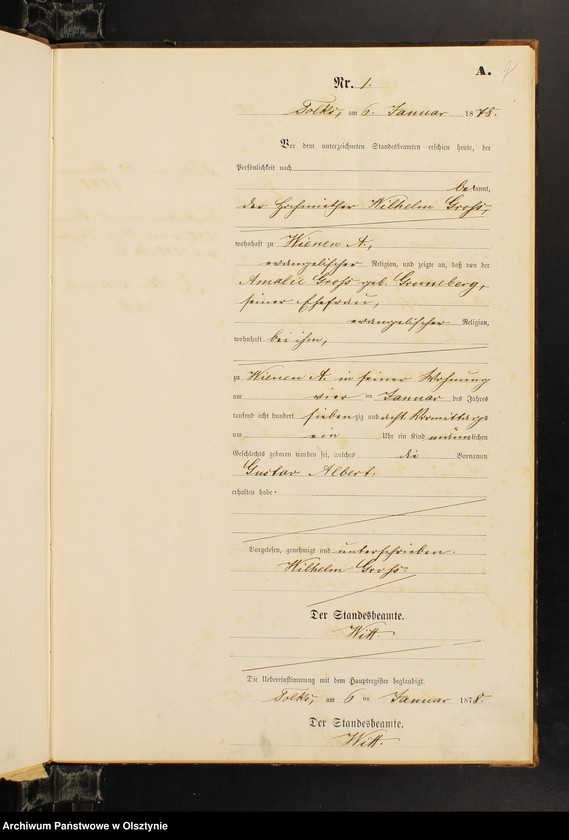 A.
Nr. 1.
Tolks, am 6. Januar 1878.
Vor dem unterzeichneten Standesbeamten erschien heute, der
Persönlichkeit nach
bekannt,
der Wilhelm Groß,
wohnhaft zu Wienen A.,
evangelischer Religion, und zeigte an, daß von der
Amalie Groß geb. Gronneberg,
seiner Ehefrau,
evangelischer Religion,
wohnhaft bei ihm,
zu Wienen A. in seiner Wohnung
am vier ten Januar des Jahres
tausend acht hundert siebenzig und acht Vormittags
um ein Uhr ein Kind männlichen
Geschlechts geboren worden sei, welches die Vornamen
Gustav Albert.
erhalten habe.
Vorgelesen, genehmigt und unterschrieben.
Wilhelm Groß.
Der Standesbeamte.
Witt.
Die Uebereinstimmung mit dem Hauptregister beglaubigt.
Tolks, am 6 ten Januar 1878.
Der Standesbeamte.
Witt.
Archiwum Państwowe w Olsztynie